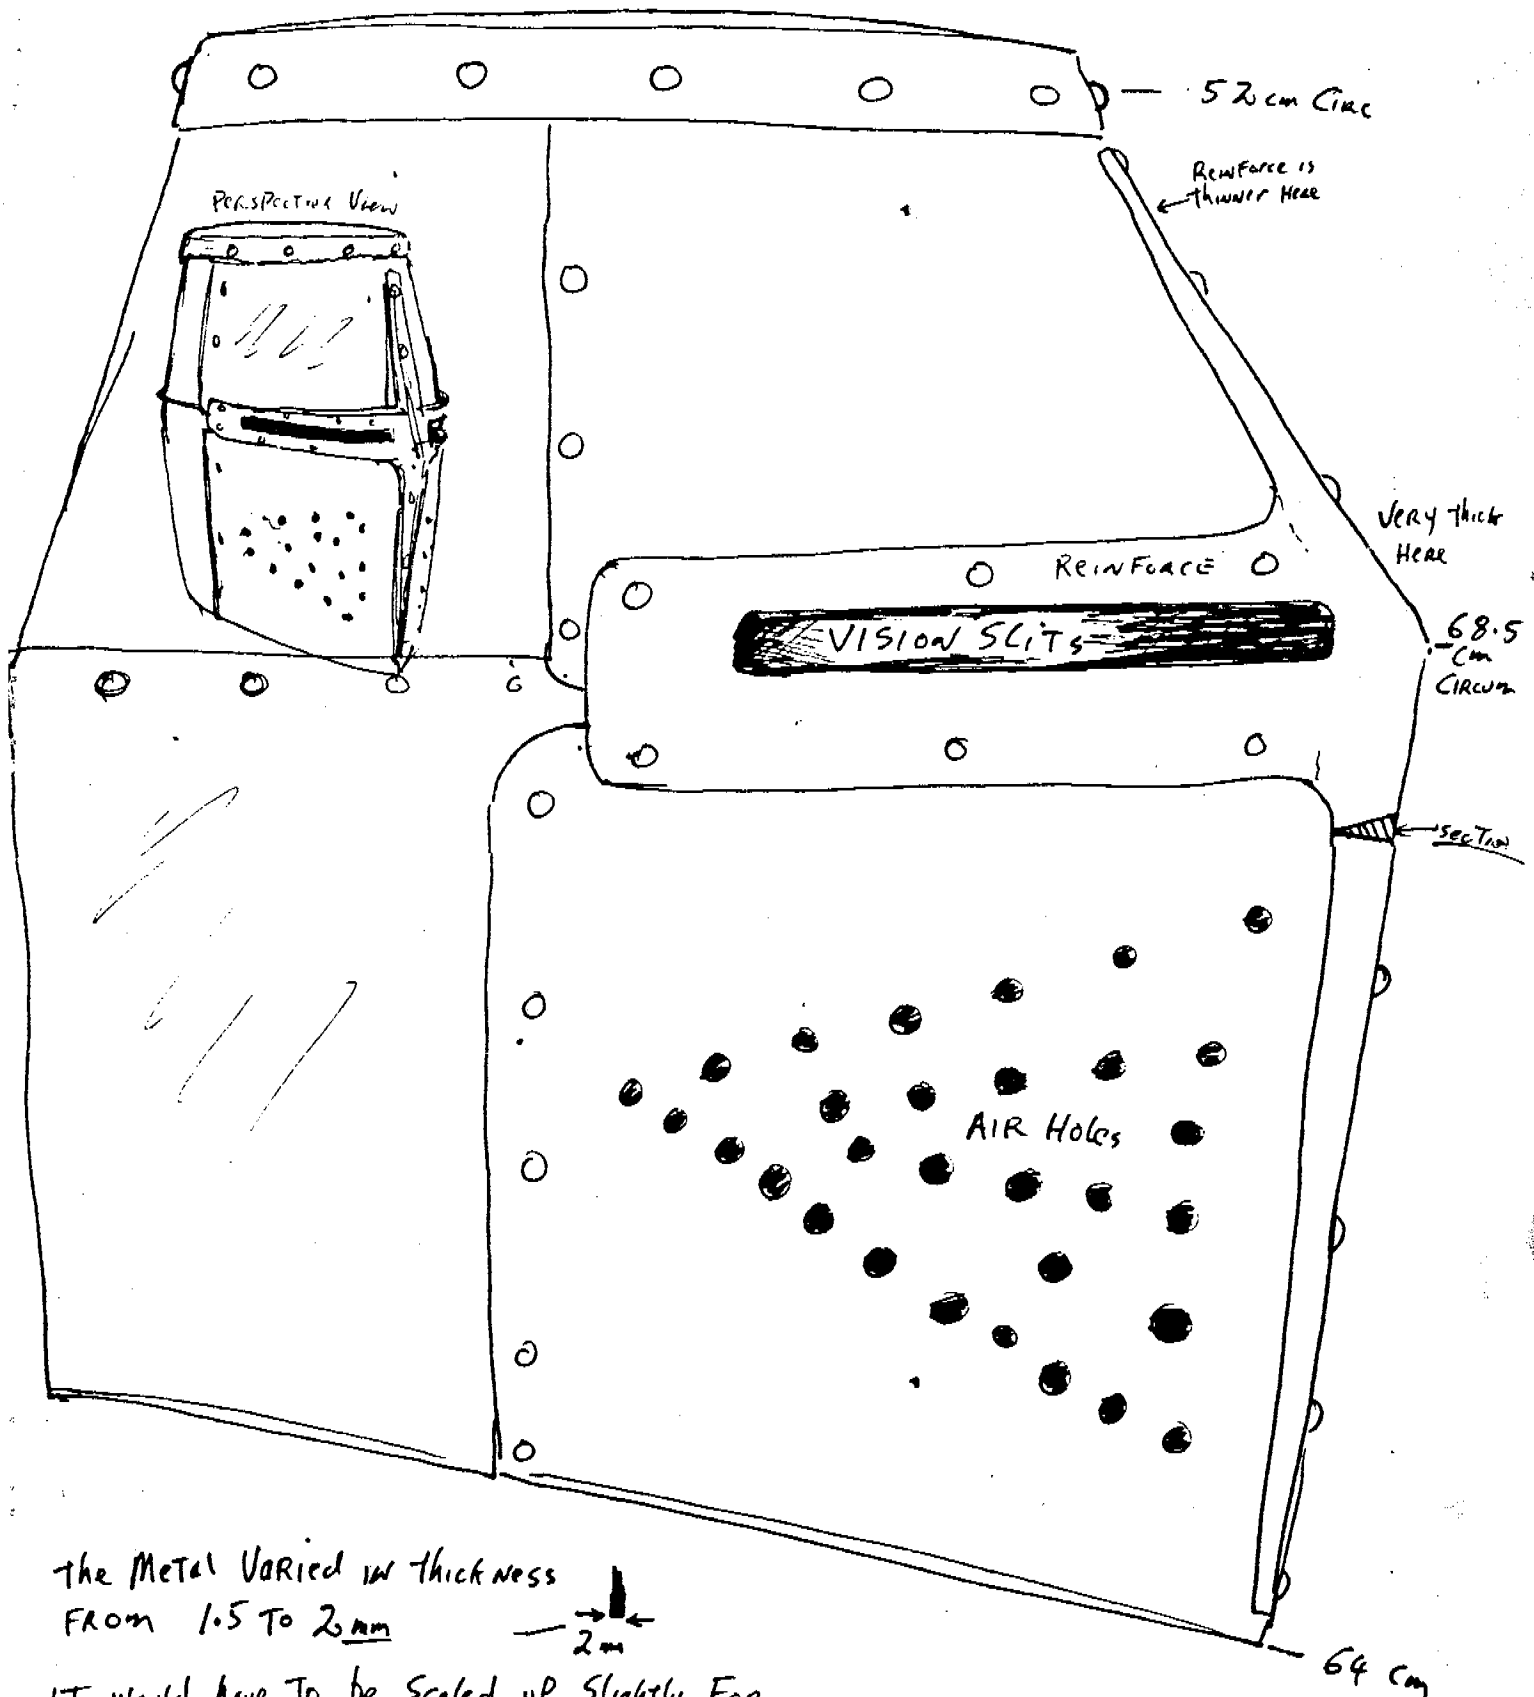 52 cm CIRC
REINFORCE IS
thinner HERE
PERSPECTIVE VIEW
VERY thick
HERE
REINFORCE
VISION SLITS
68.5
cm
CIRCUM
SECTION
AIR HOLES
the METAL VARIED IN thickNESS
FROM 1.5 TO 2 mm
2 m
64 cm
IT would have To be Scaled up Slightly For